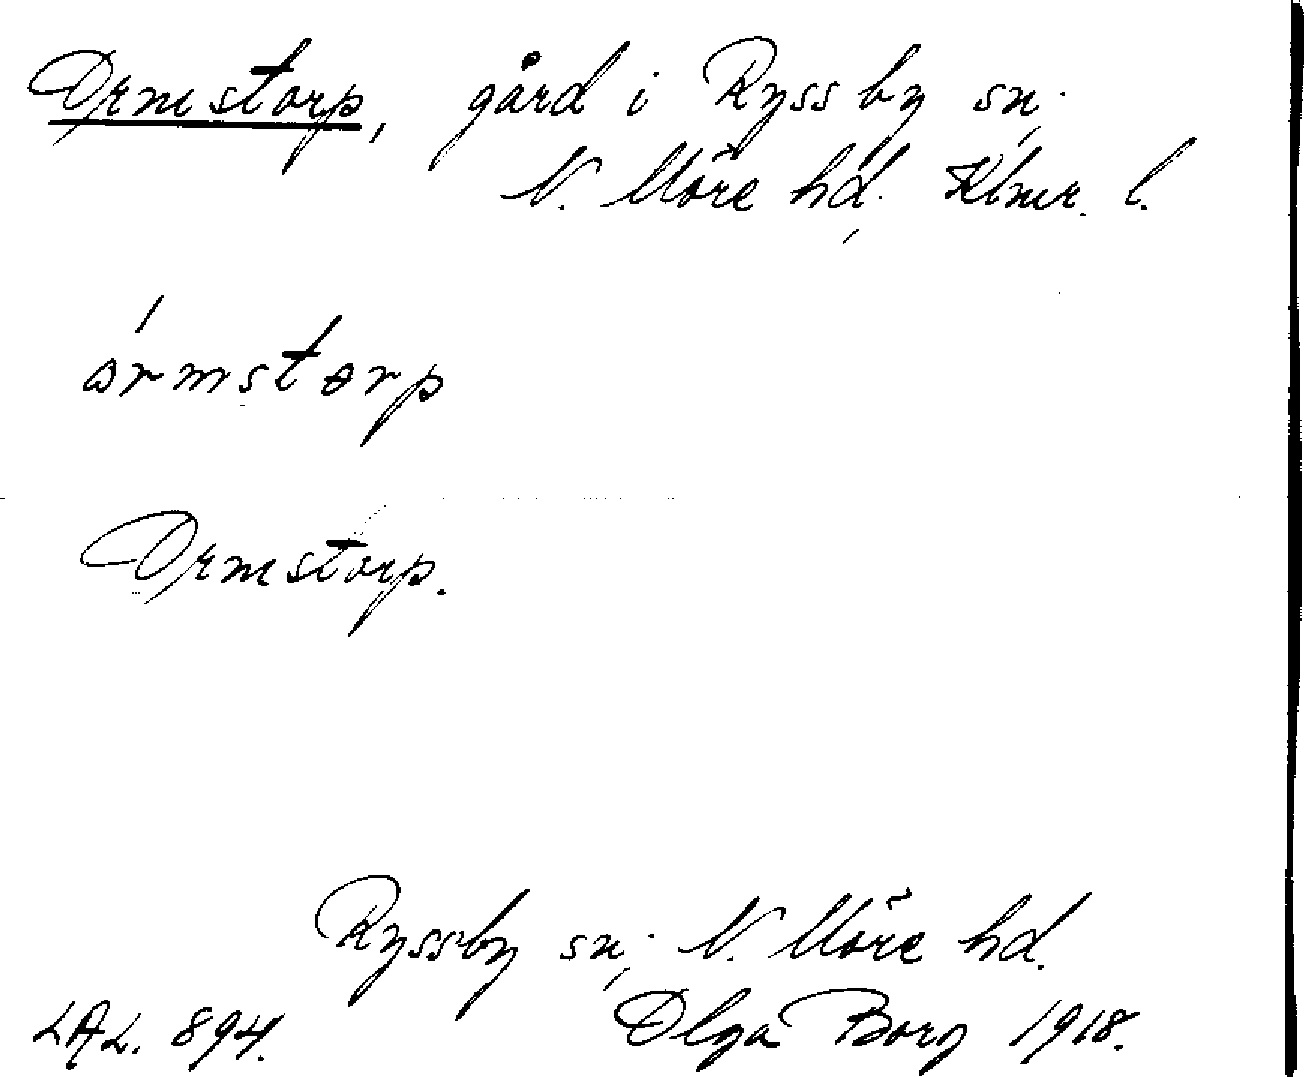 Ormstorp, gård i Ryssby sn;
N. Möre hd. Klmr. l.
ormstorp
Ormstorp.
Ryssby sn; N. Möre hd.
LAL. 894. Olga Borg 1918.